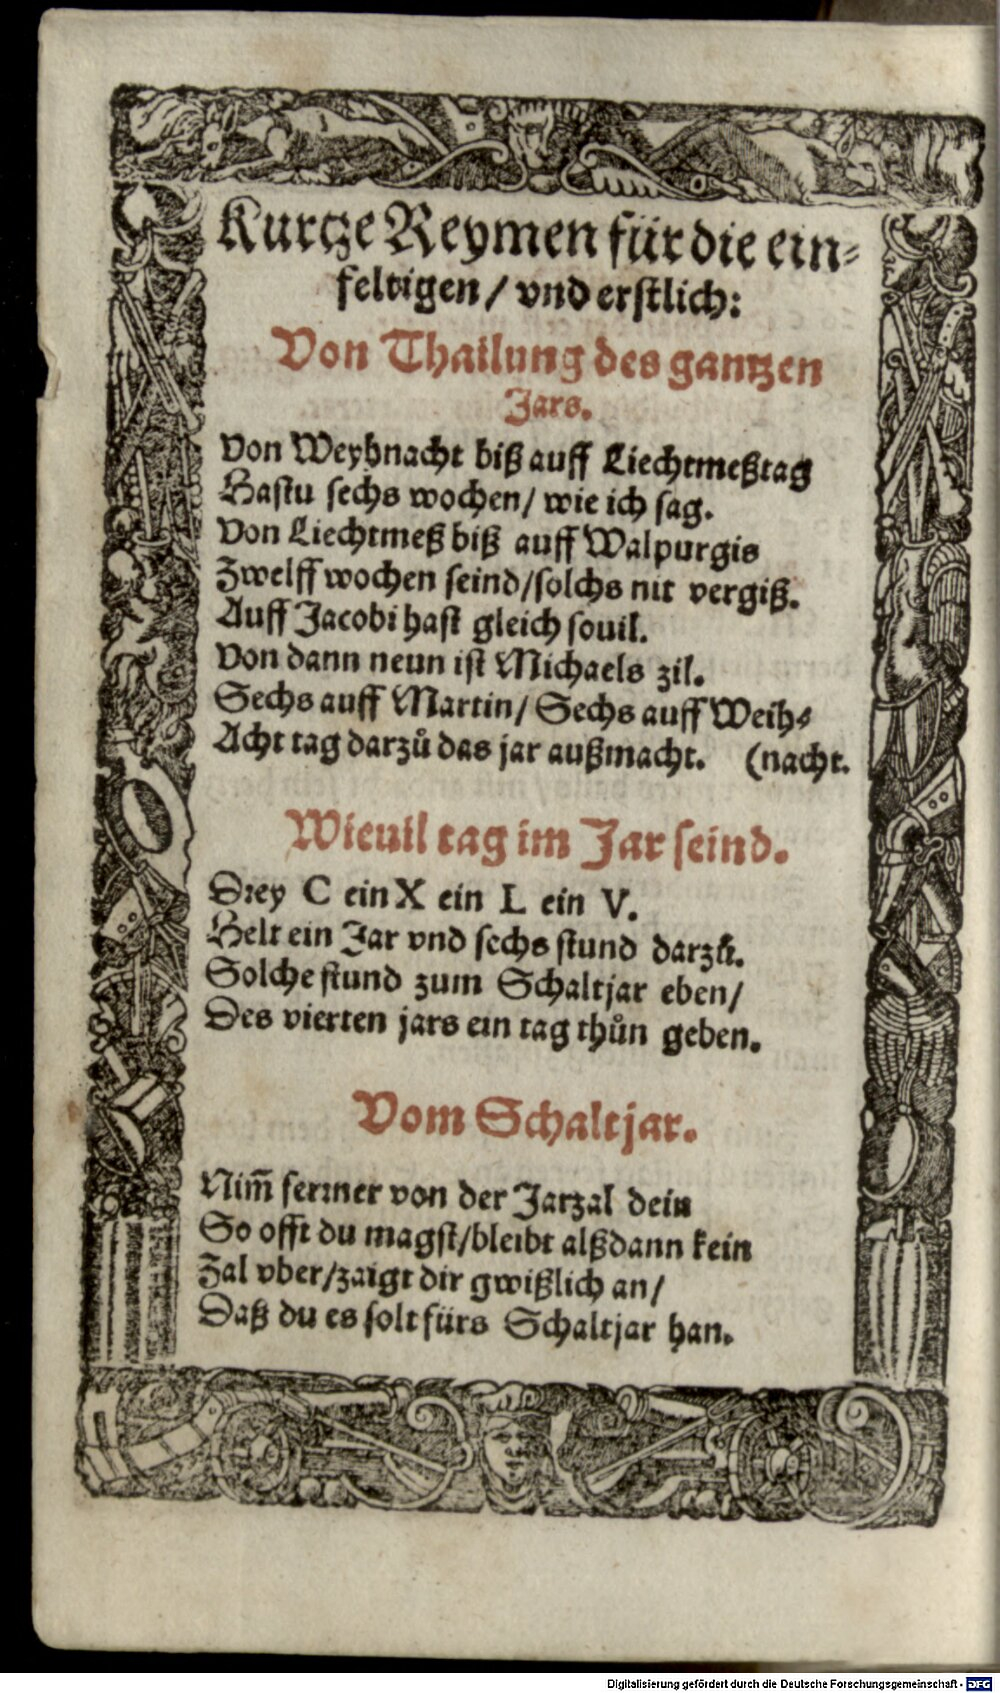 Kurtze Reymen für die ein-
feltigen / vnd erstlich:
Von Thailung des gantzen
Jars.
Von Weyhnacht biß auff Liechtmeßtag
Hastu sechs wochen / wie ich sag.
Von Liechtmeß biß auff Walpurgis
Zwelff wochen seind / solchs nit vergiß.
Auff Jacobi hast gleich souil.
Von dann neun ist Michaels zil.
Sechs auff Martin / Sechs auff Weih-
Acht tag darzů das jar außmacht. (nacht.
Wieuil tag im Jar seind.
Drey C ein X ein L ein V.
Helt ein Jar vnd sechs stund darzů.
Solche stund zum Schaltjar eben /
Des vierten jars ein tag thůn geben.
Vom Schaltjar.
Nim̄ ferrner von der Jarzal dein
So offt du magst / bleibt alßdann kein
Zal vber / zaigt dir gwißlich an /
Daß du es solt fürs Schaltjar han.
Digitalisierung gefördert durch die Deutsche Forschungsgemeinschaft - DFG